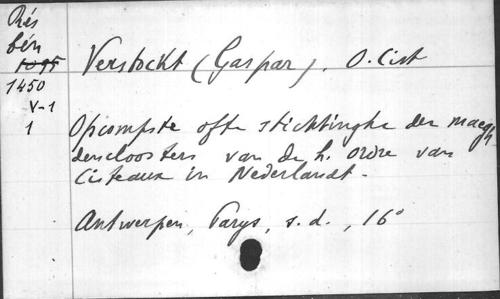 Rés
bén
1095
1450
V-1
1
Verstockt (Gaspar). O. Cist
Opcompste ofte stichtinghe der maegh
dencloosters van de h. ordre van
Cisteaux in Nederlandt.
Antwerpen, Parys, s.d., 16°